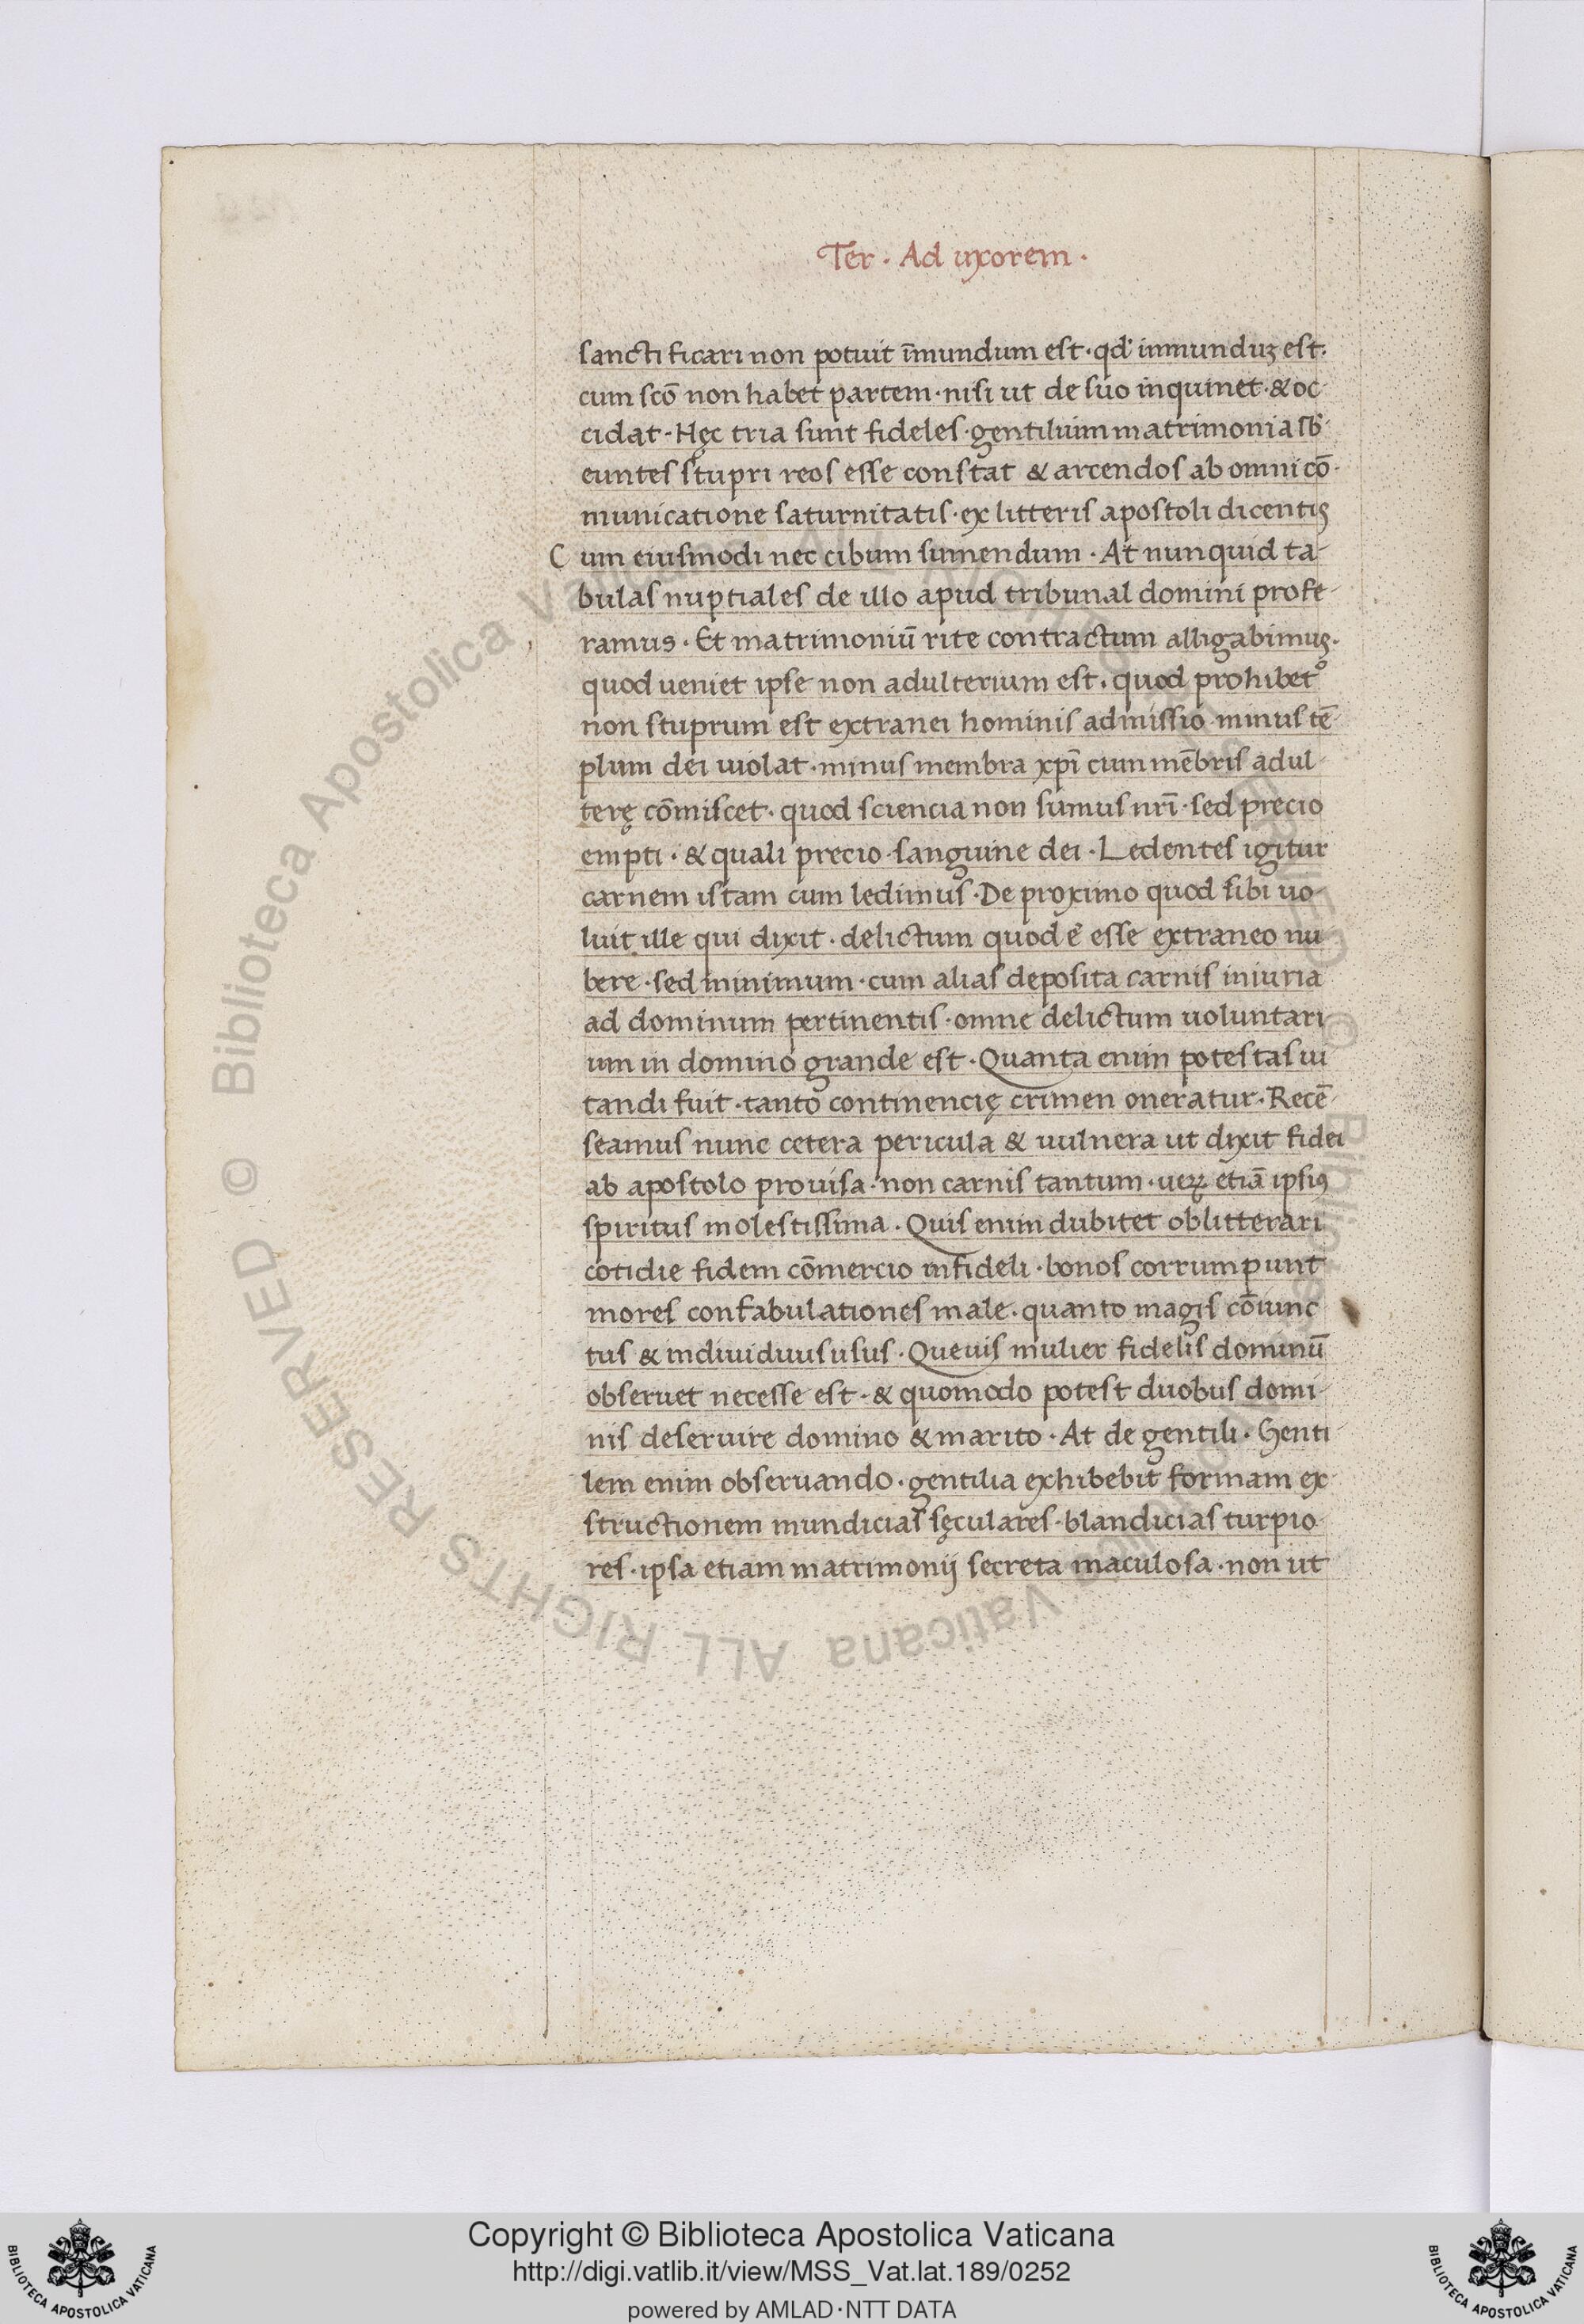 Ter · Ad uxorem ·
sanctificari non potuit īmundum est · qd' inmunduʒ est ·
cum scō non habet partem · nisi ut de suo inquinet · & oc-
cidat · Hęc tria sunt fideles · gentilium matrimonia sb'-
euntes stupri reos esse constat & arcendos ab omni cō-
municatione saturnitatis · ex litteris apostoli dicentis
Cum eiusmodi nec cibum sumendum · At nunquid ta-
bulas nuptiales de illo apud tribunal domini profe-
ramus · Et matrimoniū rite contractum alligabimus ·
quod ueniet ipse non adulterium est · quod prohibet°
non stuprum est extranei hominis admissio minus tē-
plum dei uiolat · minus membra xpī cum mēbris adul-
terę cōmiscet · quod sciencia non sumus nrī · sed precio
empti · & quali precio · sanguine dei · Ledentes igitur
carnem istam cum ledimus · De proximo quod sibi uo-
luit ille qui dixit · delictum quod ē esse extraneo nu
bere · sed minimum · cum alias deposita carnis iniuria
ad dominum pertinentis · omne delictum uoluntari
um in domino grande est · Quanta enim potestas ui
tandi fuit · tanto continencię crimen oneratur · Recē-
seamus nunc cetera pericula & uulnera ut dixit fidei
ab apostolo prouisa · non carnis tantum · ueꝝ etiā ipsiꝰ
spiritus molestissima · Quis enim dubitet oblitterari
cotidie fidem cōmercio infideli · bonos corrumpunt
mores confabulationes male · quanto magis cōiunc
tus & indiuiduus usus · Queuis mulier fidelis dominū
obseruet necesse est · & quomodo potest duobus domi-
nis deseruire domino & marito · At de gentili · Genti-
lem enim obseruando · gentilia exhibebit formam ex-
structionem mundicias sęculares · blandicias turpio-
res · ipsa etiam matrimonij secreta maculosa · non ut
© Biblioteca Apostolica Vaticana ALL RIGHTS RESERVED
Copyright © Biblioteca Apostolica Vaticana
http://digi.vatlib.it/view/MSS_Vat.lat.189/0252
powered by AMLAD·NTT DATA
BIBLIOTECA APOSTOLICA VATICANA
BIBLIOTECA APOSTOLICA VATICANA